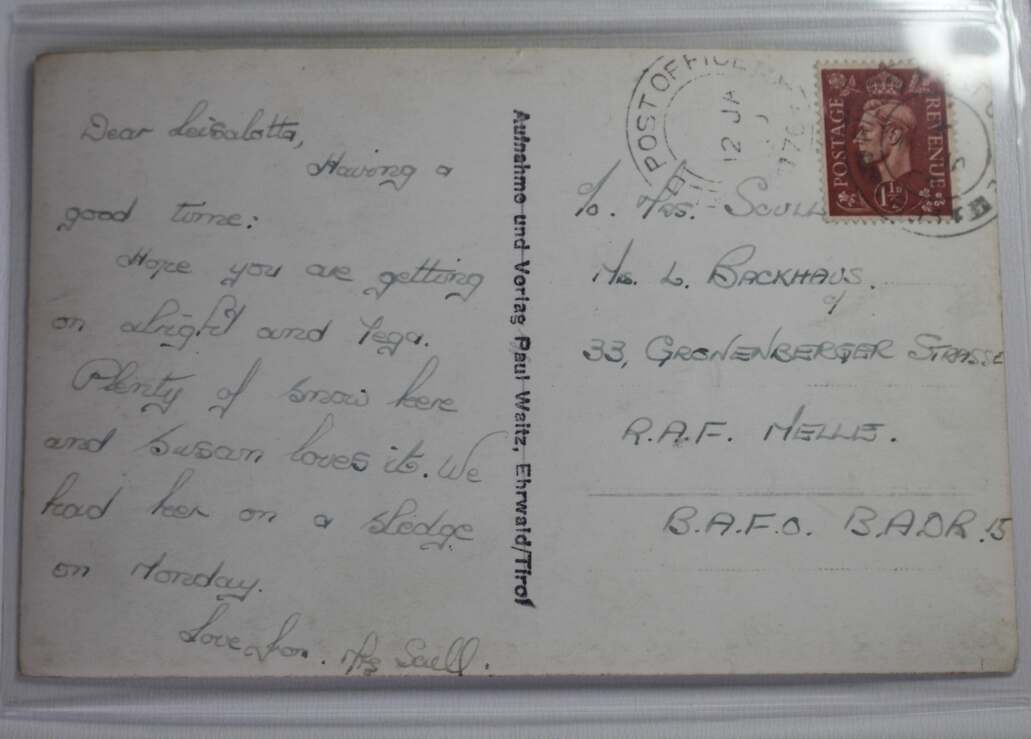 Dear Leisalotta,
Having a
good time:
Hope you are getting
on alright and Tega.
Plenty of snow here
and Susan loves it. We
had her on a sledge
on Monday.
Love from. Mrs Scull.
Aufnahme und Verlag Paul Waitz, Ehrwald/Tirol
POST OFFICE
12 JA
POSTAGE REVENUE
1½D
c/o. Mrs. SCULL
L. BACKHAUS.
c/o
33, GRONENBERGER STRASSE
R.A.F. MELLE.
B.A.F.O. B.A.O.R. 15